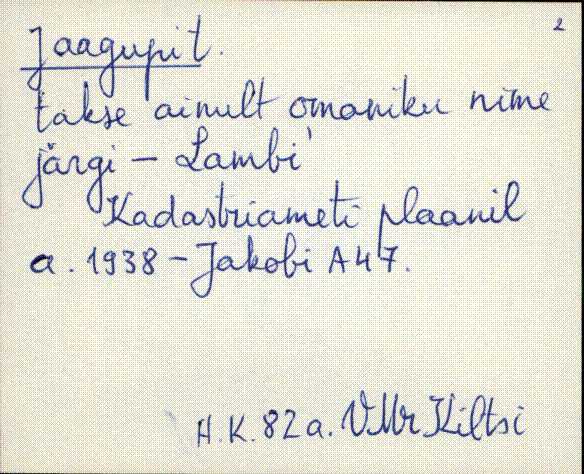 2
Jaagupi t.
takse ainult omaniku nime
järgi – Lambi'
Kadastriameti plaanil
a. 1938 – Jakobi A47.
H.K. 82a. VMr Kiltsi